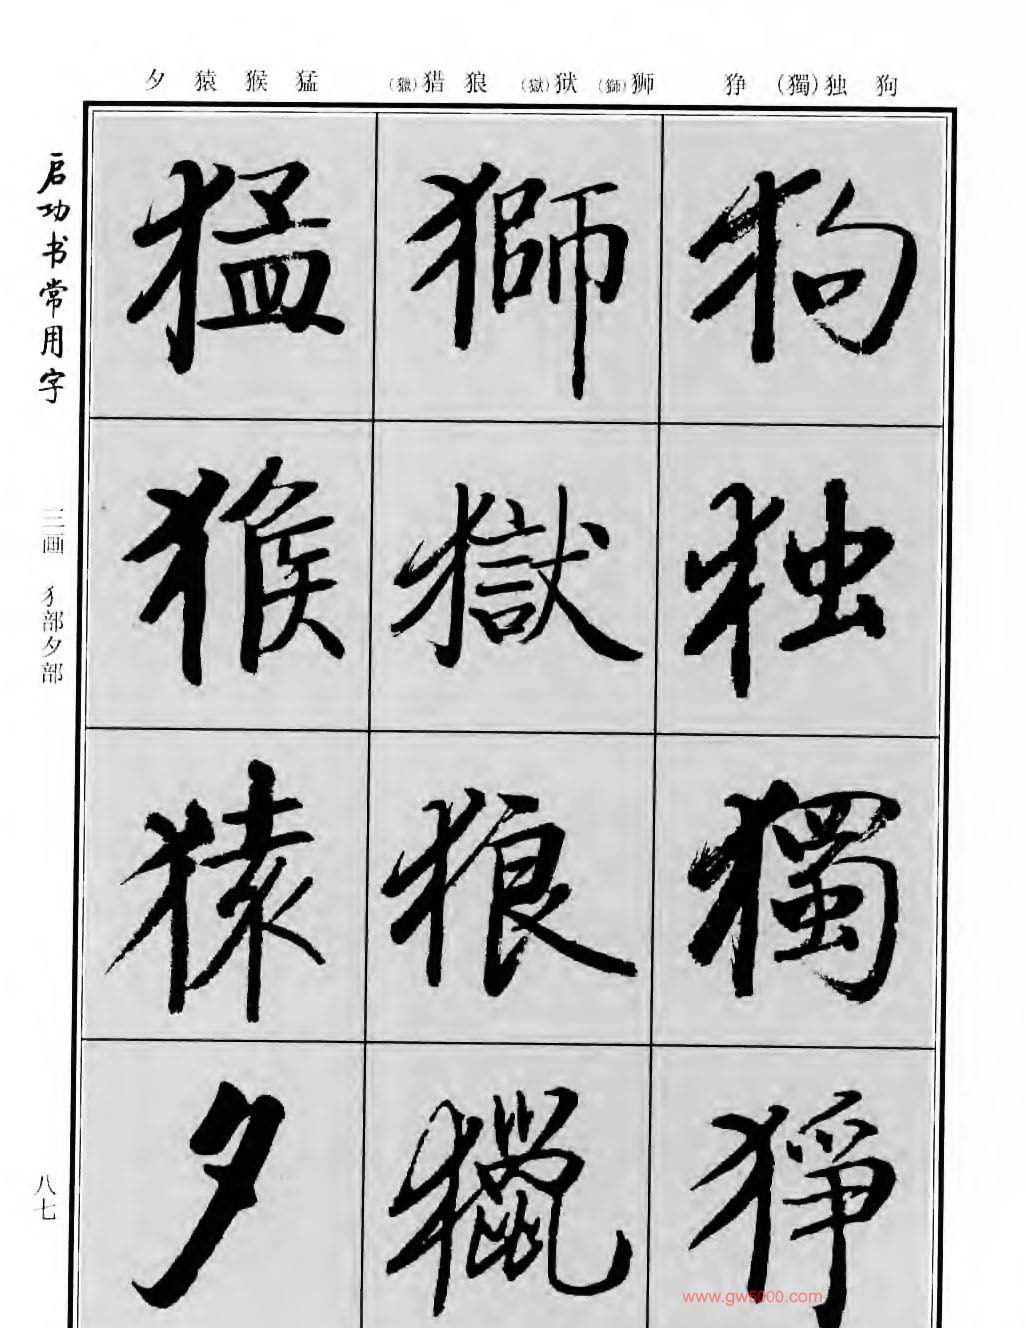 狗 独(獨) 狰
狮(獅) 狱(獄) 狼 猎(獵)
猛 猴 猿 夕
启功书常用字
三画 犭部夕部
八七
狗
独
獨
猙
獅
獄
狼
獵
猛
猴
猿
夕
www.gw5000.com